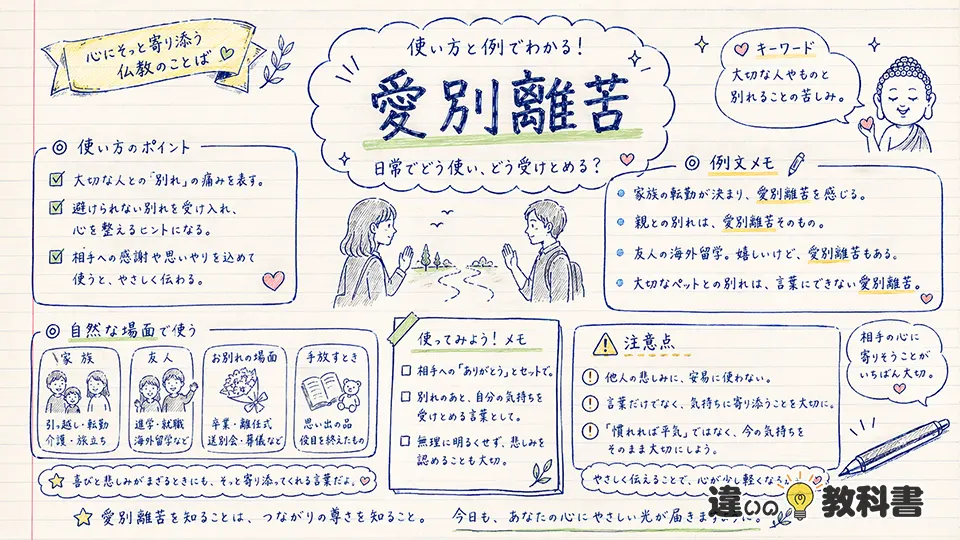 心にそっと寄り添う
仏教のことば
使い方と例でわかる！
愛別離苦
日常でどう使い、どう受けとめる？
キーワード
大切な人やものと
別れることの苦しみ。
使い方のポイント
大切な人との「別れ」の痛みを表す。
避けられない別れを受け入れ、
心を整えるヒントになる。
相手への感謝や思いやりを込めて
使うと、やさしく伝わる。
例文メモ
家族の転勤が決まり、愛別離苦を感じる。
親との別れは、愛別離苦そのもの。
友人の海外留学。嬉しいけど、愛別離苦もある。
大切なペットとの別れは、言葉にできない愛別離苦。
自然な場面で使う
家族
引っ越し・転勤
介護・旅立ち
友人
進学・就職
海外留学など
お別れの場面
卒業・離任式
送別会・葬儀など
手放すとき
思い出の品
役目を終えたもの
喜びと悲しみがまざるときにも、そっと寄り添ってくれる言葉だよ。
使ってみよう！メモ
相手への「ありがとう」とセットで。
別れのあと、自分の気持ちを
受けとめる言葉として。
無理に明るくせず、悲しみを
認めることも大切。
注意点
他人の悲しみに、安易に使わない。
言葉だけでなく、気持ちに寄り添うことを大切に。
「慣れれば平気」ではなく、今の気持ちを
そのまま大切にしよう。
相手の心に
寄りそうことが
いちばん大切。
やさしく伝えることで、心が少し軽くな
愛別離苦を知ることは、つながりの尊さを知ること。
今日も、あなたの心にやさしい光が届きます
違いの教科書